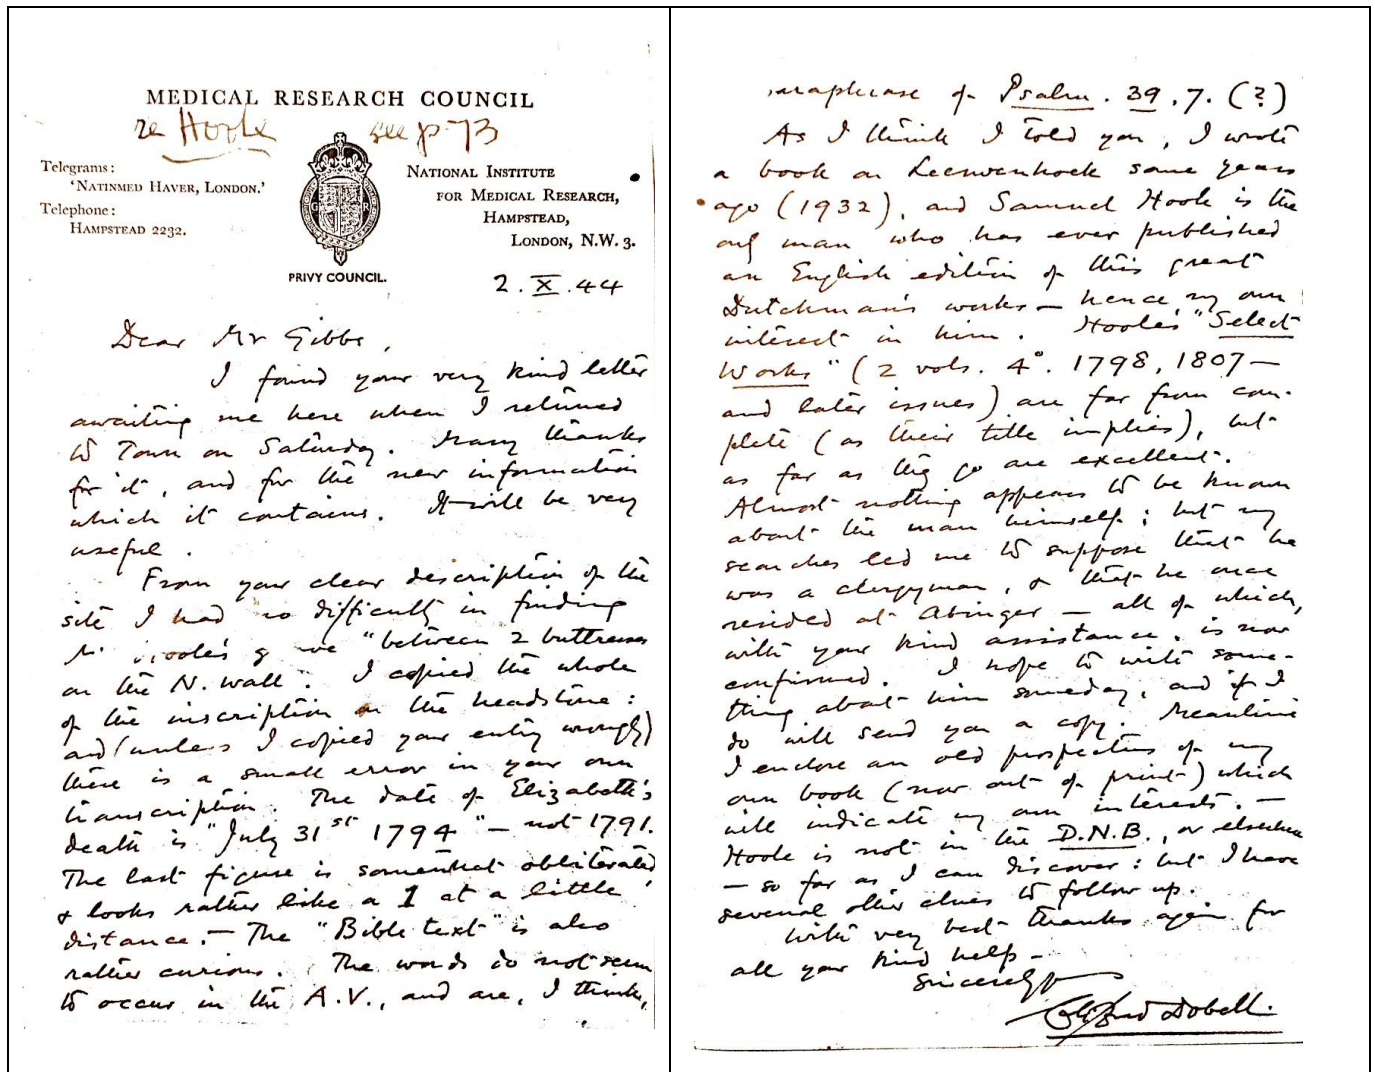 MEDICAL RESEARCH COUNCIL
re Hoole see p-73
Telegrams:
'NATINMED HAVER, LONDON.'
Telephone:
HAMPSTEAD 2232.
G R
PRIVY COUNCIL.
NATIONAL INSTITUTE
FOR MEDICAL RESEARCH,
HAMPSTEAD,
LONDON, N.W. 3.
2. X. 44
Dear Mr Gibbs,
I found your very kind letter
awaiting me here when I returned
to Town on Saturday. Many thanks
for it, and for the new information
which it contains. It will be very
useful.
From your clear description of the
site I had no difficulty in finding
Hoole's "between 2 buttresses
on the N. wall". I copied the whole
of the inscription on the headstone:
and (unless I copied your entry wrongly)
there is a small error in your own
transcription. The date of Elizabeth's
death is "July 31st 1794" — not 1791.
The last figure is somewhat obliterated,
& looks rather like a 1 at a little
distance. — The "Bible text" is also
rather curious. The words do not seem
to occur in the A.V., and are, I think,
paraphrase of Psalm. 39. 7. (?)
As I think I told you, I wrote
a book on Leeuwenhoek some years
ago (1932), and Samuel Hoole is the
only man who has ever published
an English edition of this great
Dutchman's works — hence my own
interest in him. Hoole's "Select
Works" (2 vols. 4°. 1798, 1807 —
and later issues) are far from com-
plete (as their title implies), but
as far as they go are excellent.
Almost nothing appears to be known
about the man himself: but my
searches led me to suppose that he
was a clergyman, & that he once
resided at Abinger — all of which,
with your kind assistance, is now
confirmed. I hope to write some-
thing about him someday, and if I
do will send you a copy. Meantime
I enclose an old prospectus of my
own book (now out of print) which
will indicate my own interests. —
Hoole is not in the D.N.B., or elsewhere
— so far as I can discover: but I have
several other clues to follow up.
With very best thanks again for
all your kind help —
Sincerely yrs
Clifford Dobell.